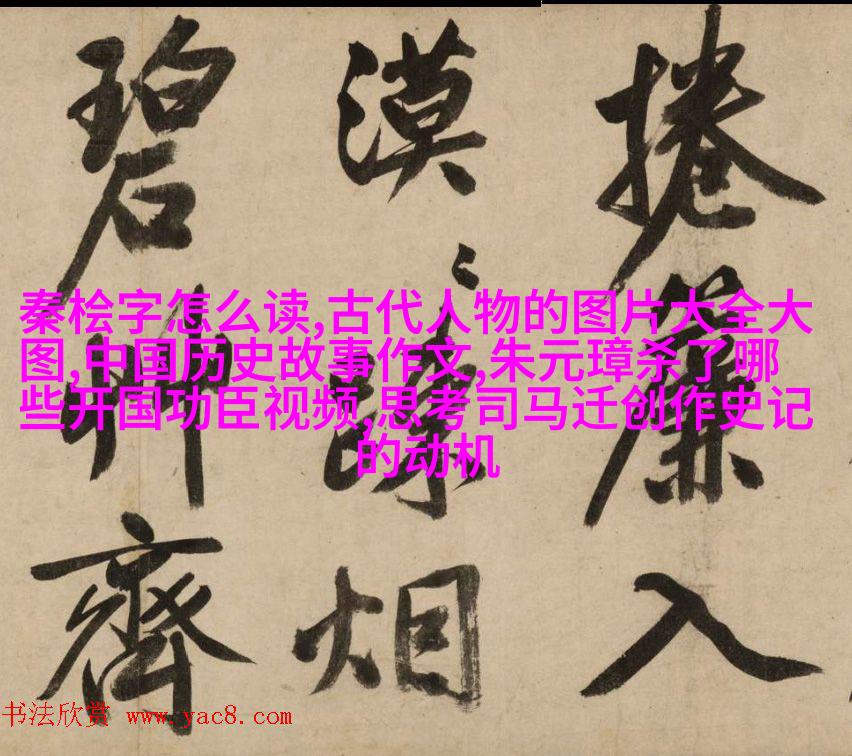 捲簾入
漠〻踈烟
碧艸齊
秦桧字怎么读,古代人物的图片大全大
图,中国历史故事作文,朱元璋杀了哪
些开国功臣视频,思考司马迁创作史记
的动机
书法欣赏 www.yac8.com